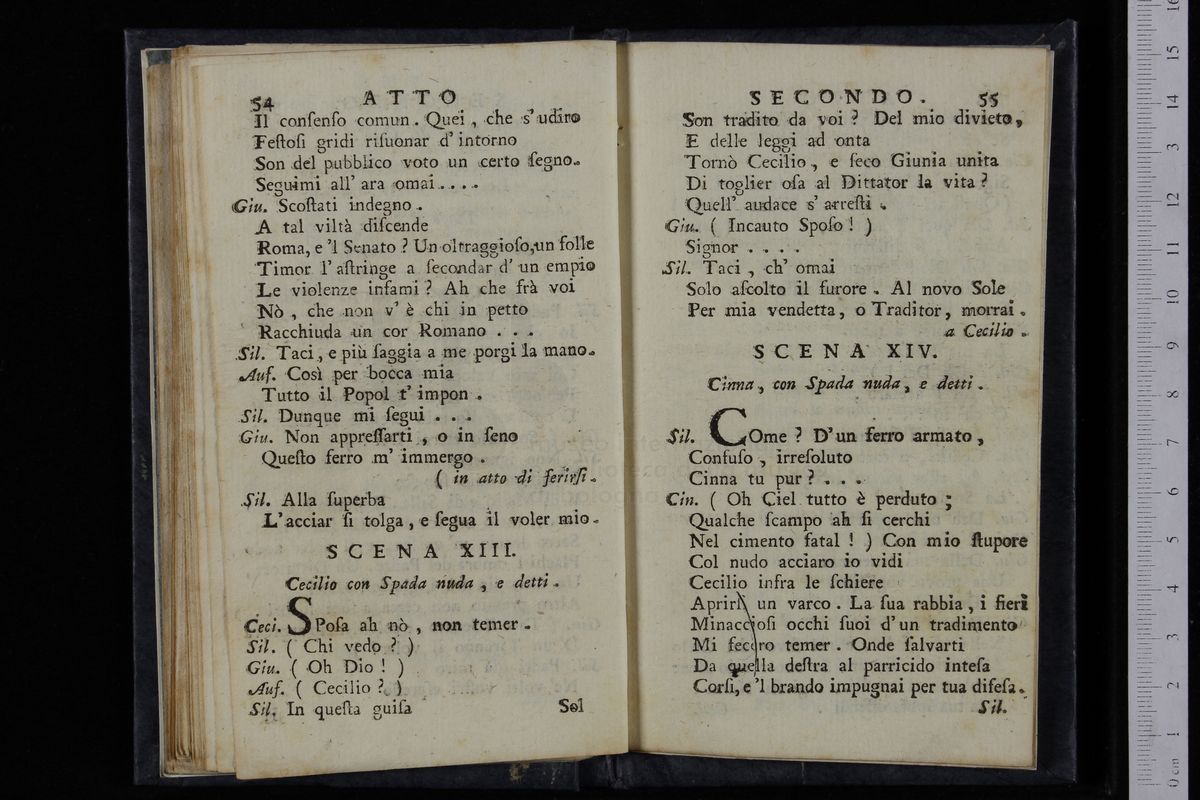 54 ATTO
Il conſenſo comun. Quei, che s' udiro
Feſtoſi gridi riſuonar d' intorno
Son del pubblico voto un certo ſegno.
Seguimi all' ara omai....
Giu. Scoſtati indegno.
A tal viltà diſcende
Roma, e 'l Senato? Un oltraggioſo, un folle
Timor l' aſtringe a ſecondar d' un empio
Le violenze infami? Ah che frà voi
Nò, che non v' è chi in petto
Racchiuda un cor Romano...
Sil. Taci, e più ſaggia a me porgi la mano.
Auf. Così per bocca mia
Tutto il Popol t' impon.
Sil. Dunque mi ſegui...
Giu. Non appreſſarti, o in ſeno
Queſto ferro m' immergo.
( in atto di ferirſi.
Sil. Alla ſuperba
L' acciar ſi tolga, e ſegua il voler mio.
SCENA XIII.
Cecilio con Spada nuda, e detti.
Ceci. SPoſa ah nò, non temer.
Sil. ( Chi vedo? )
Giu. ( Oh Dio! )
Auf. ( Cecilio? )
Sil. In queſta guiſa
Sol
SECONDO. 55
Son tradito da voi? Del mio divieto,
E delle leggi ad onta
Tornò Cecilio, e ſeco Giunia unita
Di toglier oſa al Dittator la vita?
Quell' audace s' arreſti.
Giu. ( Incauto Spoſo! )
Signor....
Sil. Taci, ch' omai
Solo aſcolto il furore. Al novo Sole
Per mia vendetta, o Traditor, morrai.
a Cecilio.
SCENA XIV.
Cinna, con Spada nuda, e detti.
Sil. COme? D' un ferro armato,
Confuſo, irreſoluto
Cinna tu pur?...
Cin. ( Oh Ciel tutto è perduto;
Qualche ſcampo ah ſi cerchi
Nel cimento fatal! ) Con mio ſtupore
Col nudo acciaro io vidi
Cecilio infra le ſchiere
Aprirſi un varco. La ſua rabbia, i fieri
Minaccioſi occhi ſuoi d' un tradimento
Mi fecero temer. Onde ſalvarti
Da quella deſtra al parricido inteſa
Corſi, e 'l brando impugnai per tua difeſa.
Sil.